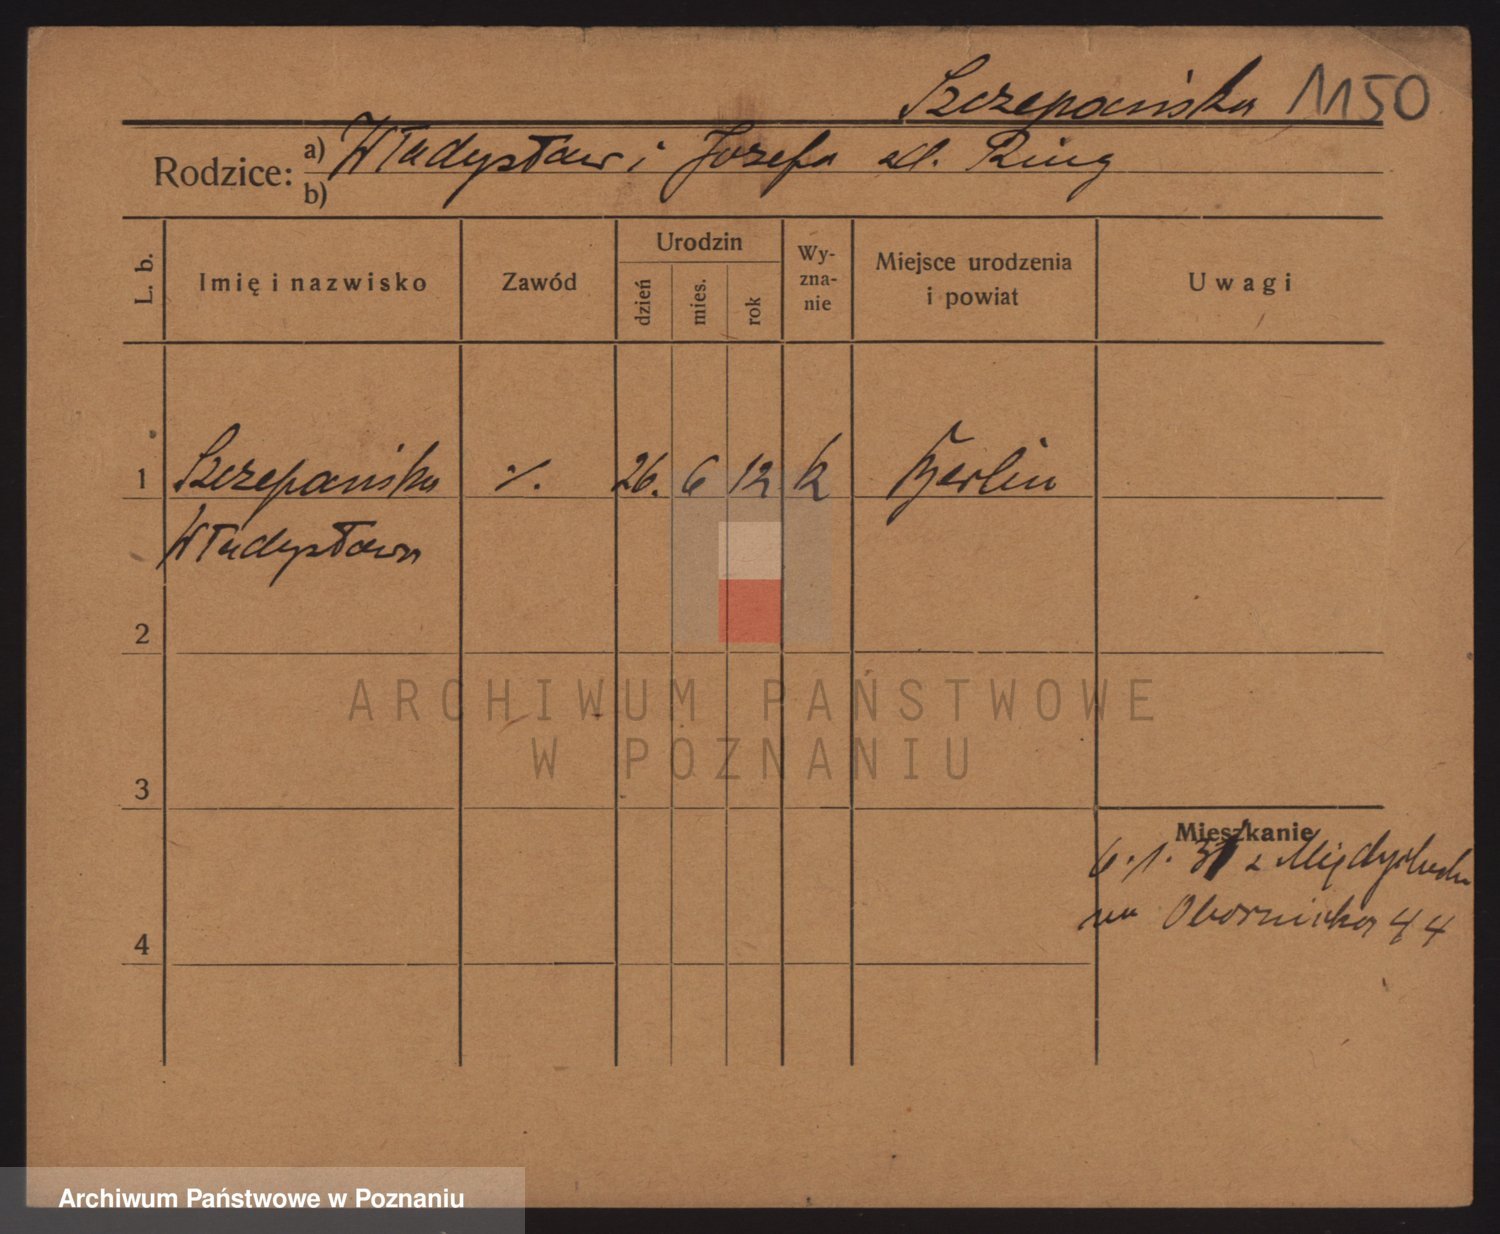 Szczepańska 1150
Rodzice: a) Władysław i Józefa zd. Ring
b)
L. b. Imię i nazwisko Zawód Urodzin dzień mies. rok Wy-zna-nie Miejsce urodzenia i powiat Uwagi
1 Szczepańska ./. 26. 6 12 k Berlin
Władysława
2
ARCHIWUM PAŃSTWOWE
W POZNANIU
3
Mieszkanie
6.1.31 z Międzychodu
na Obornicka 44
4
Archiwum Państwowe w Poznaniu